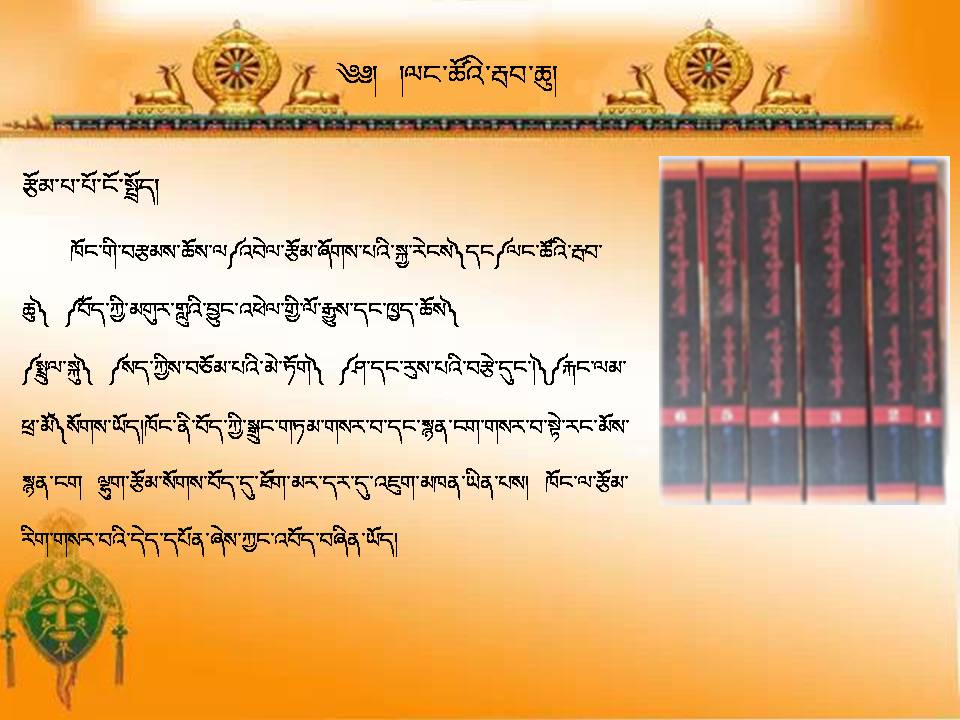 ༄༅། །ལང་ཚོའི་རྦབ་ཆུ།
རྩོམ་པ་པོ་ངོ་སྤྲོད།
ཁོང་གི་བརྩམས་ཆོས་ལ༼འབེལ་རྩོམ་ཞོགས་པའི་སྐྱ་རེངས༽དང༼ལང་ཚོའི་རྦབ་
ཆུ༽ ༼བོད་ཀྱི་མགུར་གླུའི་བྱུང་འཕེལ་གྱི་ལོ་རྒྱུས་དང་ཁྱད་ཆོས༽
༼སྤྲུལ་སྐུ༽ ༼སད་ཀྱིས་བཅོམ་པའི་མེ་ཏོག༽ ༼ཤ་དང་རུས་པའི་བརྩེ་དུང་།༽༼རྐང་ལམ་
ཕྲ་མོ༽སོགས་ཡོད།ཁོང་ནི་བོད་ཀྱི་སྒྲུང་གཏམ་གསར་བ་དང་སྙན་ངག་གསར་བ་སྟེ་རང་མོས་
སྙན་ངག ལྷུག་རྩོམ་སོགས་བོད་དུ་ཐོག་མར་དར་དུ་འཇུག་མཁན་ཡིན་པས། ཁོང་ལ་རྩོམ་
རིག་གསར་བའི་དེད་དཔོན་ཞེས་ཀྱང་འབོད་བཞིན་ཡོད།
6 5 4 3 2 1